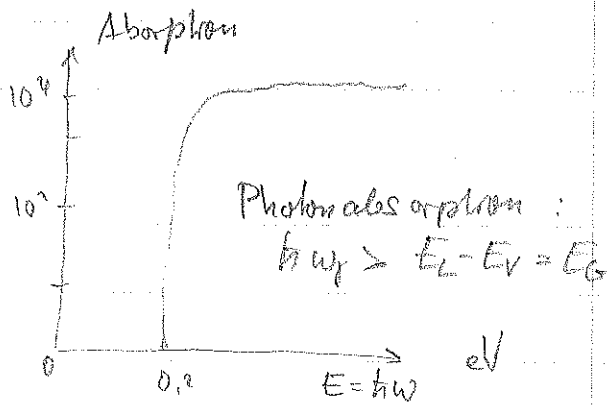 Aborption
10⁴
10²
Photonabsorption :
ħω > E_L - E_V = E_G
0
0,2
E = ħω
eV